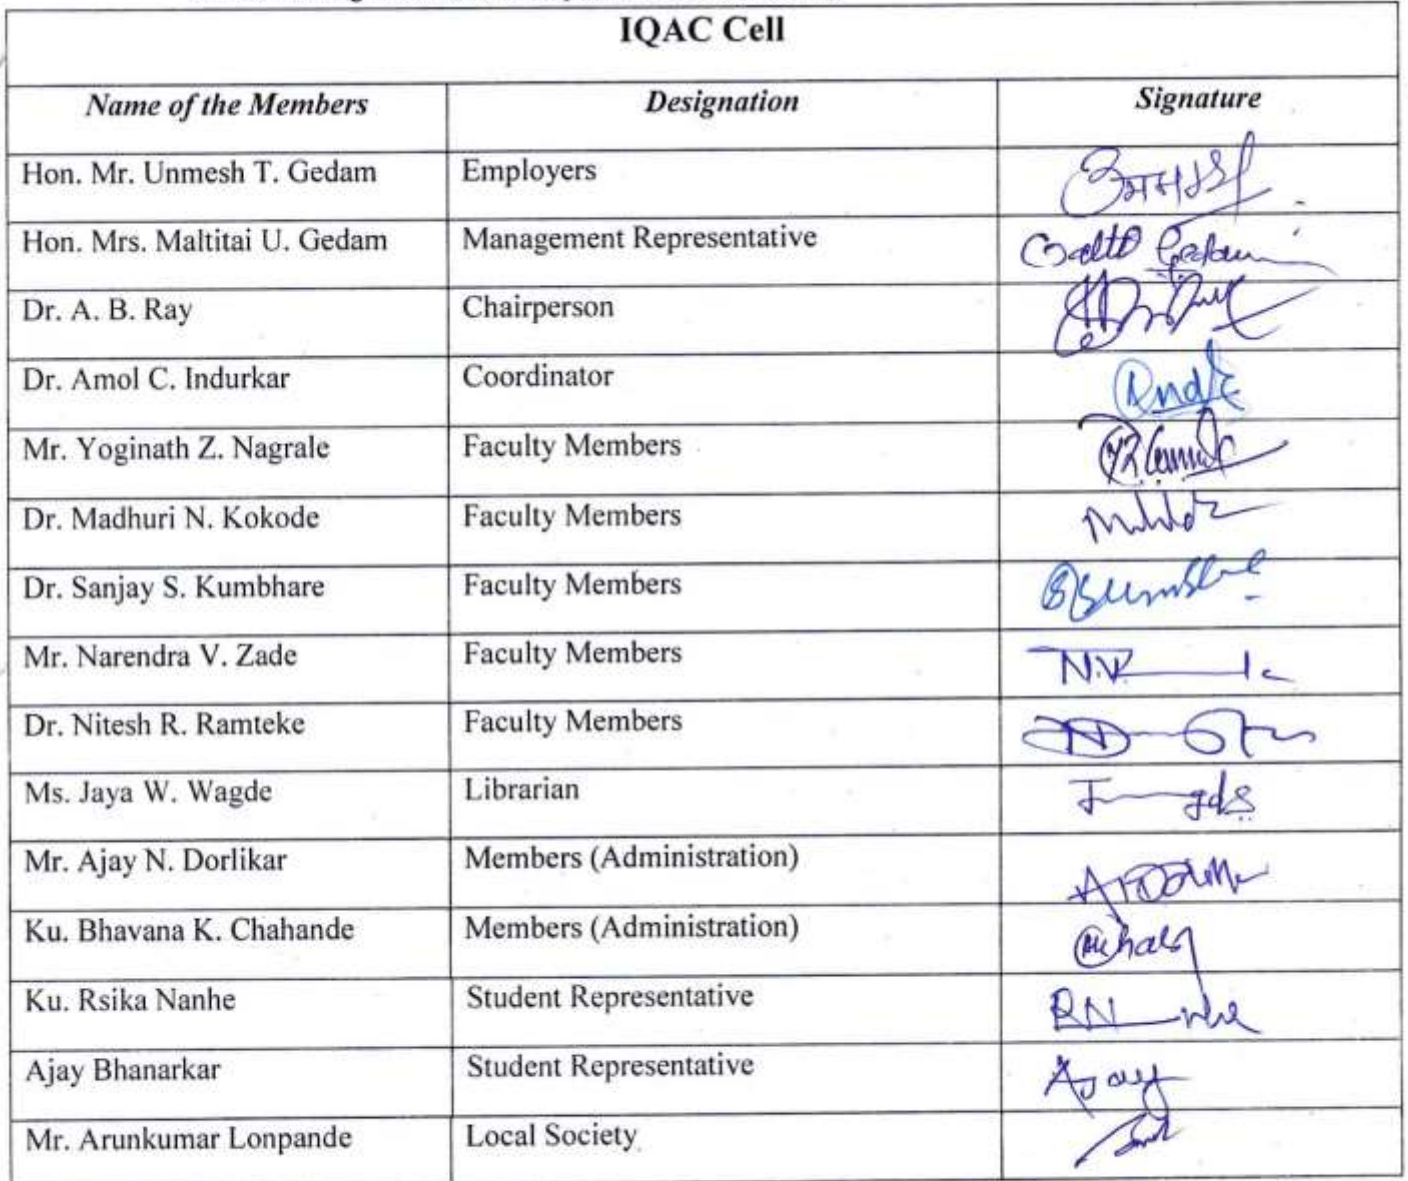 IQAC Cell
Name of the Members Designation Signature
Hon. Mr. Unmesh T. Gedam Employers
Hon. Mrs. Maltitai U. Gedam Management Representative
Dr. A. B. Ray Chairperson
Dr. Amol C. Indurkar Coordinator
Mr. Yoginath Z. Nagrale Faculty Members
Dr. Madhuri N. Kokode Faculty Members
Dr. Sanjay S. Kumbhare Faculty Members
Mr. Narendra V. Zade Faculty Members N.V.
Dr. Nitesh R. Ramteke Faculty Members
Ms. Jaya W. Wagde Librarian
Mr. Ajay N. Dorlikar Members (Administration)
Ku. Bhavana K. Chahande Members (Administration)
Ku. Rsika Nanhe Student Representative
Ajay Bhanarkar Student Representative Ajay
Mr. Arunkumar Lonpande Local Society